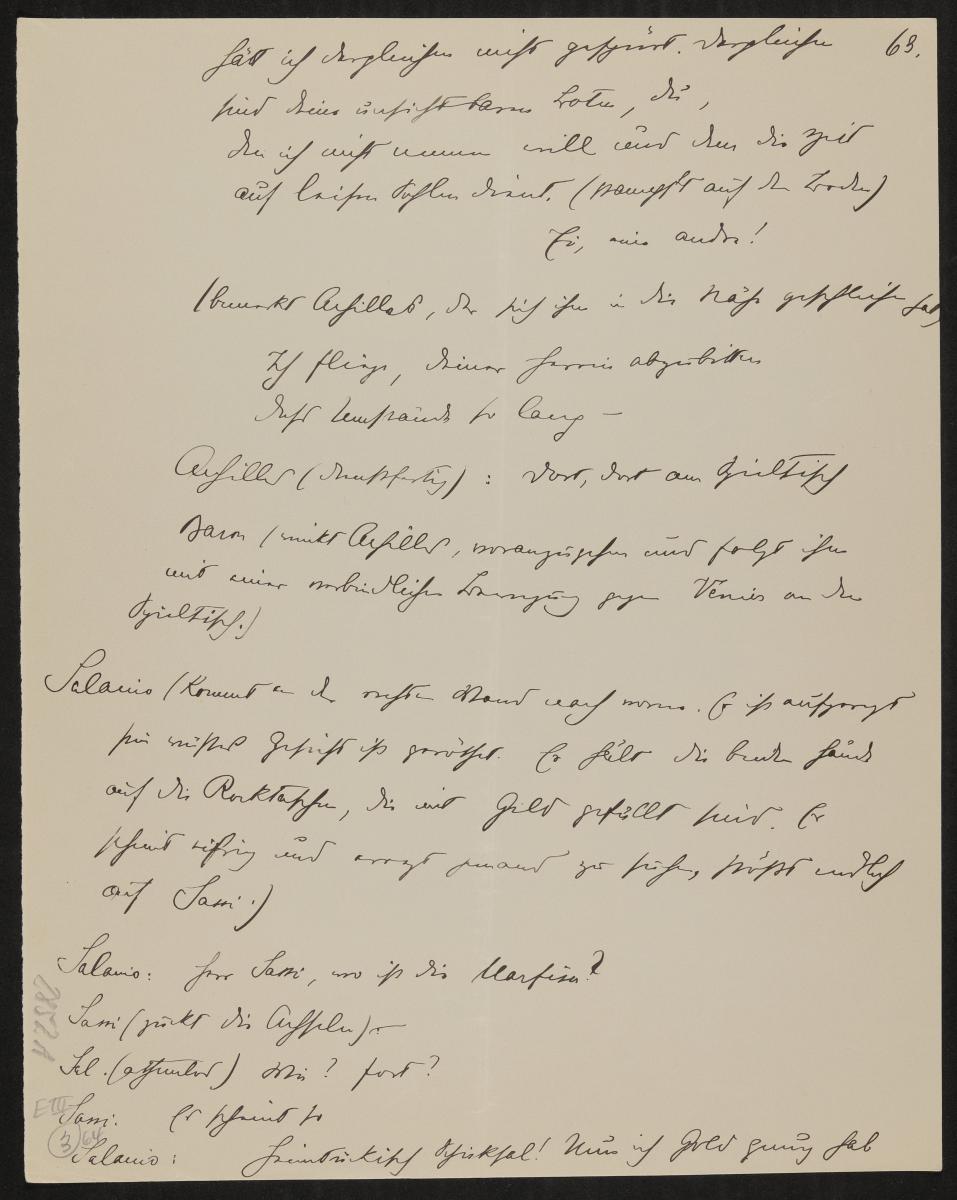 hätt ich dergleichen nicht gespürt. Dergleichen 63.
sind deine unsichtbaren Boten, du,
den ich nicht nennen will und dem die Zeit
auf leisen Sohlen dient. (stampft auf den Boden)
Ei, eine andre!
(bemerkt Achilles, der sich ihm in die Nähe geschlichen hat)
Ich fliege, deiner Herrin abzubitten
dass Umstände so lang –
Achilles (dienstfertig) : Dort, dort am Spieltisch
Baron (winkt Achilles, voranzugehen und folgt ihm
mit einer verbindlichen Bewegung gegen Venier an den
Spieltisch.)
Salaino (kommt an der rechten Wand nach vorne. Er ist aufgeregt
sein Gesicht ist geröthet. Er hält die beiden Hände
auf die Rocktaschen, die mit Gold gefüllt sind. Er
scheint eifrig und erregt jemand zu suchen, stößt endlich
auf Sassi.)
Salaino: Herr Sassi, wo ist die Marfisa?
Sassi (zuckt die Achseln) –
Sal. (athemlos) Wie? fort?
Sassi. Er scheint so
Salaino: Heimtückisch Schicksal! Nun ich Gold genug hab
H 25582
E III
3 64